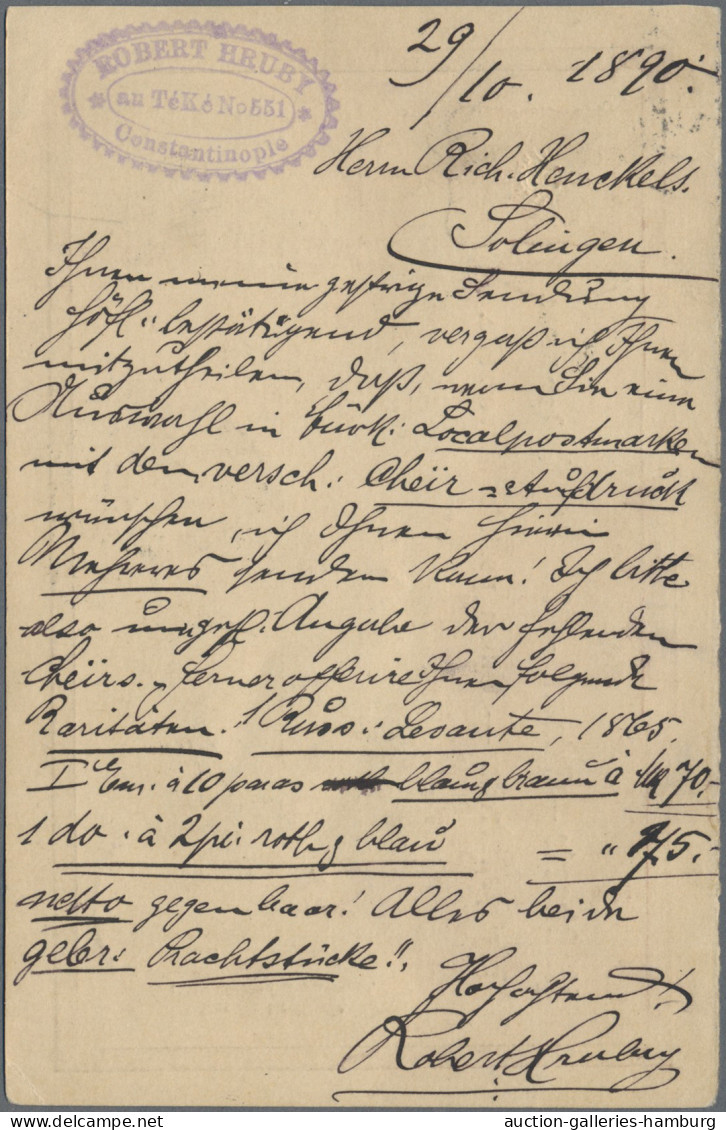 ROBERT HRUBY
au TéKé No 551
Constantinople
29/10. 1890.
Herrn Rich. Henckels.
Solingen.
Ihnen meine gestrige Sendung
höfl: bestätigend, vergaß ich Ihnen
mitzutheilen, daß, wenn Sie eine
Auswahl in türk: Localpostmarken
mit dem versch: Cheïr=Aufdruck
wünschen, ich Ihnen hievon
Mehreres senden kann! Ich bitte
also um gefl. Angabe der fehlenden
Cheïrs. Ferner offerire Ihnen folgende
Raritäten: 1 Russ: Levante, 1865,
I Em: à 10 paras blau & braun à M 70.-
1 do. à 2 pi: roth & blau = " 75.-
netto gegen baar! Alles beide
gebr: Prachtstücke!!
Hochachtend
Robert Hruby
auction-galleries-hamburg